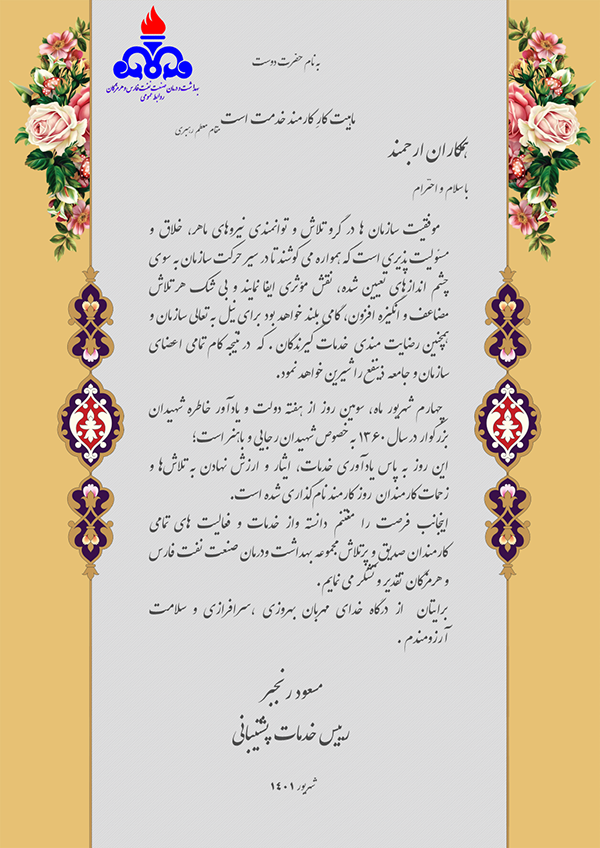 بهداشت و درمان صنعت نفت فارس و هرمزگان
روابط عمومی
به نام حضرت دوست
ماهیت کارِ کارمند خدمت است
مقام معظم رهبری
همکاران ارجمند
با سلام و احترام
موفقیت سازمان ها در گرو تلاش و توانمندی نیروهای ماهر، خلاق و
مسئولیت پذیری است که همواره می کوشند تا در سیر حرکت سازمان به سوی
چشم اندازهای تعیین شده، نقش مؤثری ایفا نمایند و بی شک هر تلاش
مضاعف و انگیزه افزون، گامی بلند خواهد بود برای نیل به تعالی سازمان و
همچنین رضایت مندی خدمات گیرندگان . که در نتیجه کام تمامی اعضای
سازمان و جامعه ذینفع را شیرین خواهد نمود.
چهارم شهریور ماه، سومین روز از هفته دولت و یادآور خاطره شهیدان
بزرگوار در سال ۱۳۶۰ به خصوص شهیدان رجایی و باهنر است؛
این روز به پاس یادآوری خدمات، ایثار و ارزش نهادن به تلاش‌ها و
زحمات کارمندان روز کارمند نام گذاری شده است.
اینجانب فرصت را مغتنم دانسته واز خدمات و فعالیت های تمامی
کارمندان صدیق و پرتلاش مجموعه بهداشت ودرمان صنعت نفت فارس
و هرمزگان تقدیر و تشکر می نمایم .
برایتان از درگاه خدای مهربان بهروزی ،سرافرازی و سلامت
آرزومندم .
مسعود رنجبر
رییس خدمات پشتیبانی
شهریور ۱۴۰۱